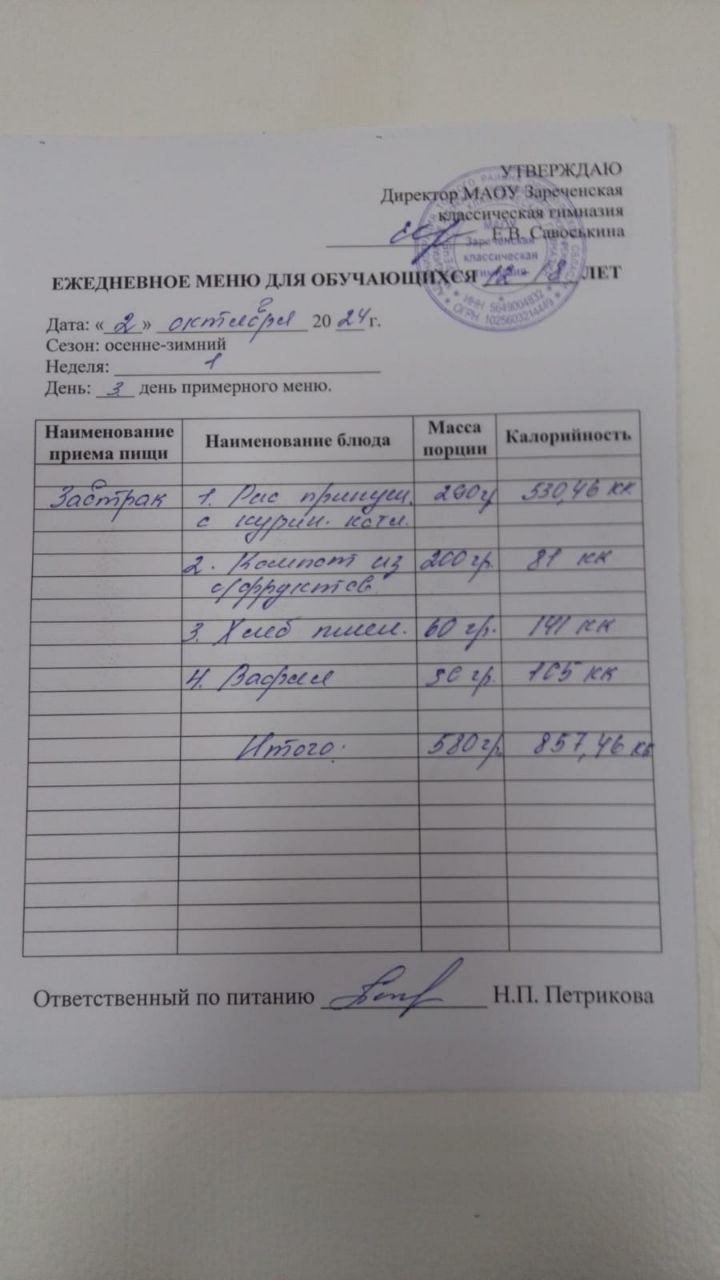 УТВЕРЖДАЮ
Директор МАОУ Зареченская
классическая гимназия
Е.В. Савоськина
МАОУ
Зареченская
классическая
гимназия
ИНН 5649004832
ОГРН 1025603214449
ЕЖЕДНЕВНОЕ МЕНЮ ДЛЯ ОБУЧАЮЩИХСЯ 12 - 18 ЛЕТ
Дата: «2» октября 2024 г.
Сезон: осенне-зимний
Неделя: 1
День: 3 день примерного меню.
Наименование приема пищи Наименование блюда Масса порции Калорийность
Завтрак 1. Рис припущ. 290г 530,46 кк
с курин. котл.
2. Компот из 200 гр. 81 кк
с/фруктов
3. Хлеб пшен. 60 гр. 141 кк
4. Вафля 30 гр. 105 кк
Итого: 580гр. 857,46 кк
Ответственный по питанию Н.П. Петрикова